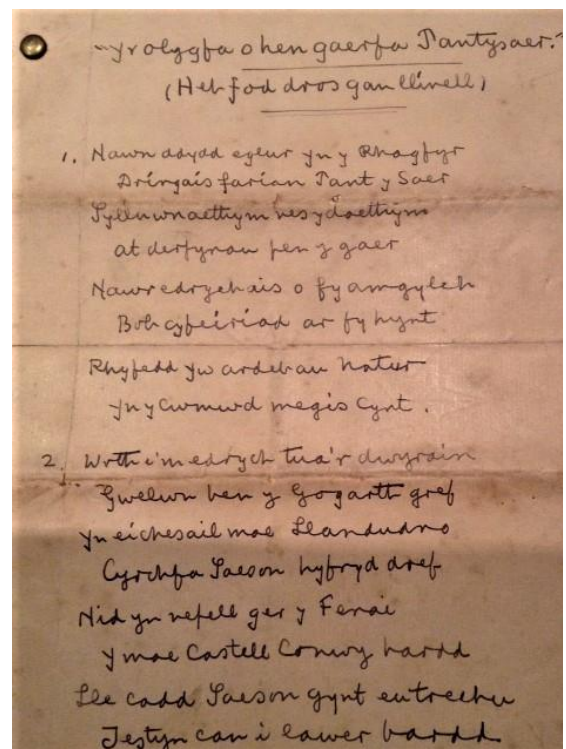 "Yr olygfa o hen gaerfa Pantysaer."
(Heb fod dros gan llinell)
1. Nawn ddydd eglur yn y Rhagfyr
Dringais farian Pant y Saer
Syllu wnaethym nes y daethym
at derfynau pen y gaer
Nawr edrychais o fy amgylch
Bob cyfeiriad ar fy hynt
Rhyfedd yw ardebau natur
yn y Cwmwd megis cynt.
2. Wrth i'm edrych tua'r dwyrain
Gwelwn ben y Gogarth gref
yn ei chesail mae Llandudno
Cyrchfa Saeson hyfryd dref
Nid yn nepell ger y Fenai
y mae Castell Conwy hardd
Lle cadd Saeson gynt eu trechu
Testyn can i lawer bardd.